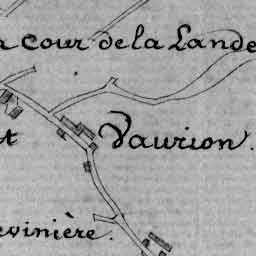 a Cour de la Lande
t Vaurion.
evinière.